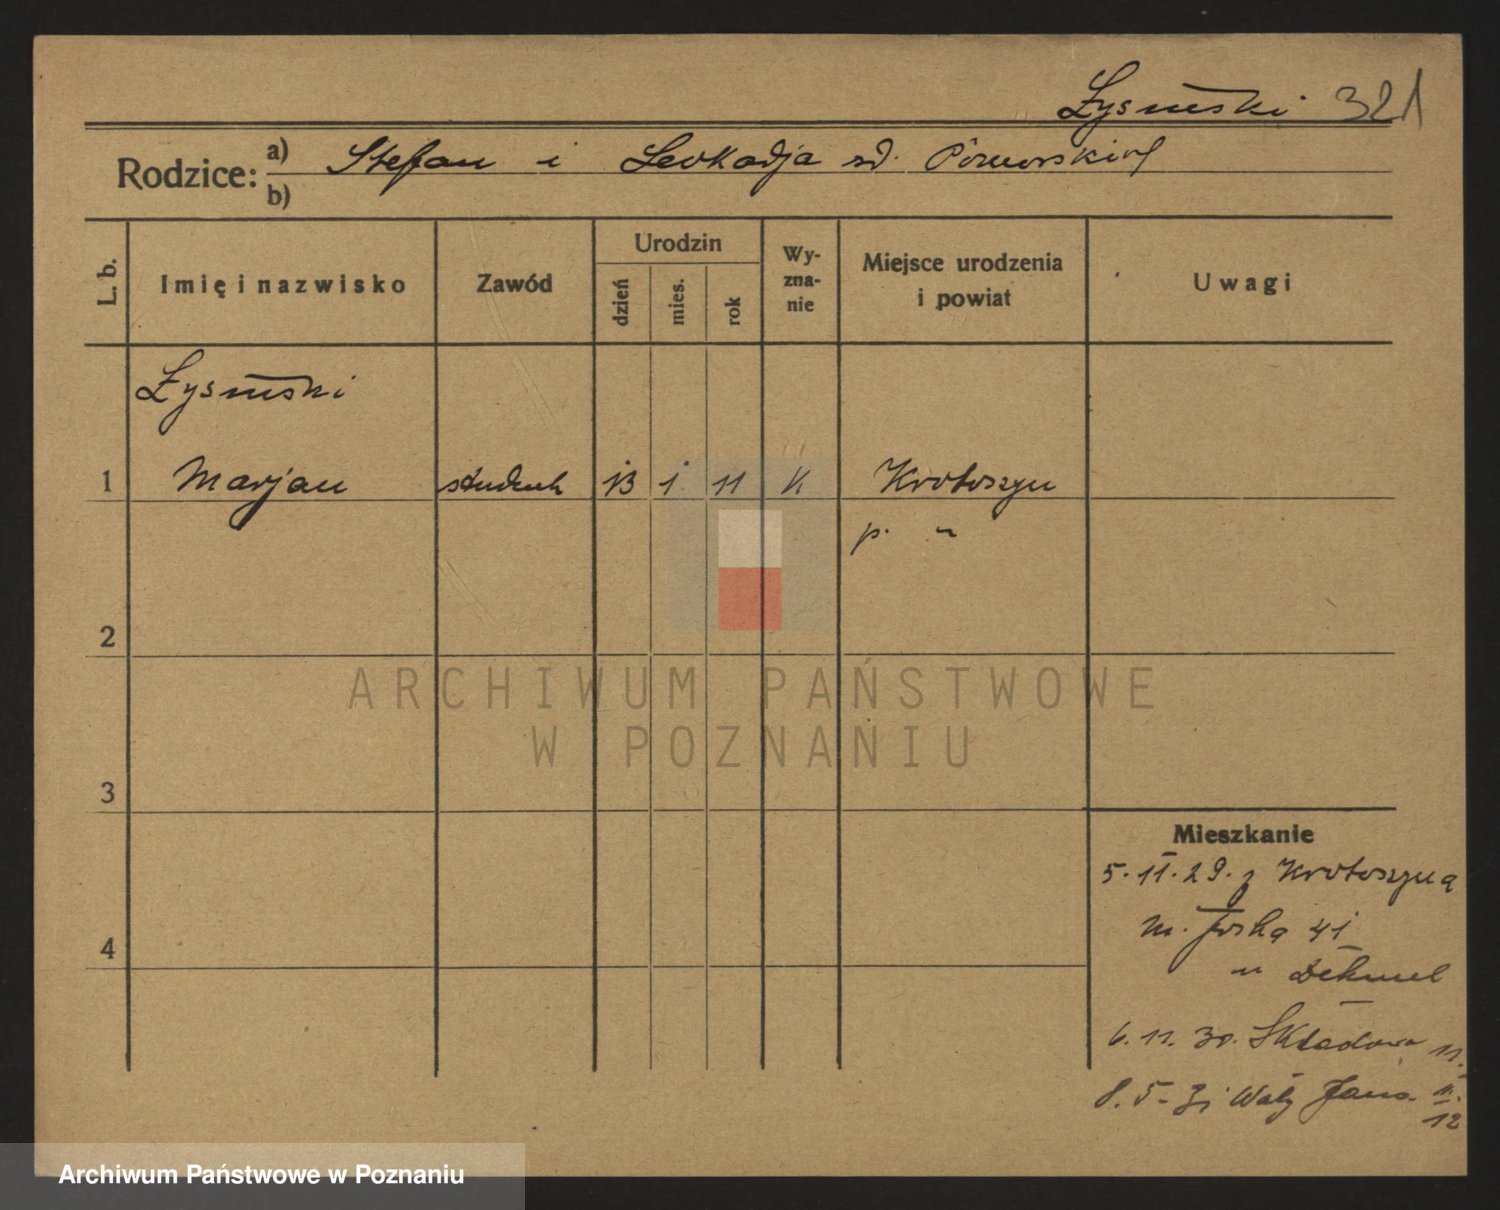 Łysiński 321
Rodzice: a) Stefan i Leokadja zd.
b)
L. b.
Imię i nazwisko
Zawód
Urodzin
dzień
mies.
rok
Wy-
zna-
nie
Miejsce urodzenia
i powiat
Uwagi
Łysiński
1 Marjan student 13 1 11 k Krotoszyn
p. "
2
ARCHIWUM PAŃSTWOWE
W POZNANIU
3
Mieszkanie
5.11.29. z Krotoszyna
4
m. 41
u
6.11.30. Składowa 11.
8.5.31 Wały Jana 11.
12
Archiwum Państwowe w Poznaniu